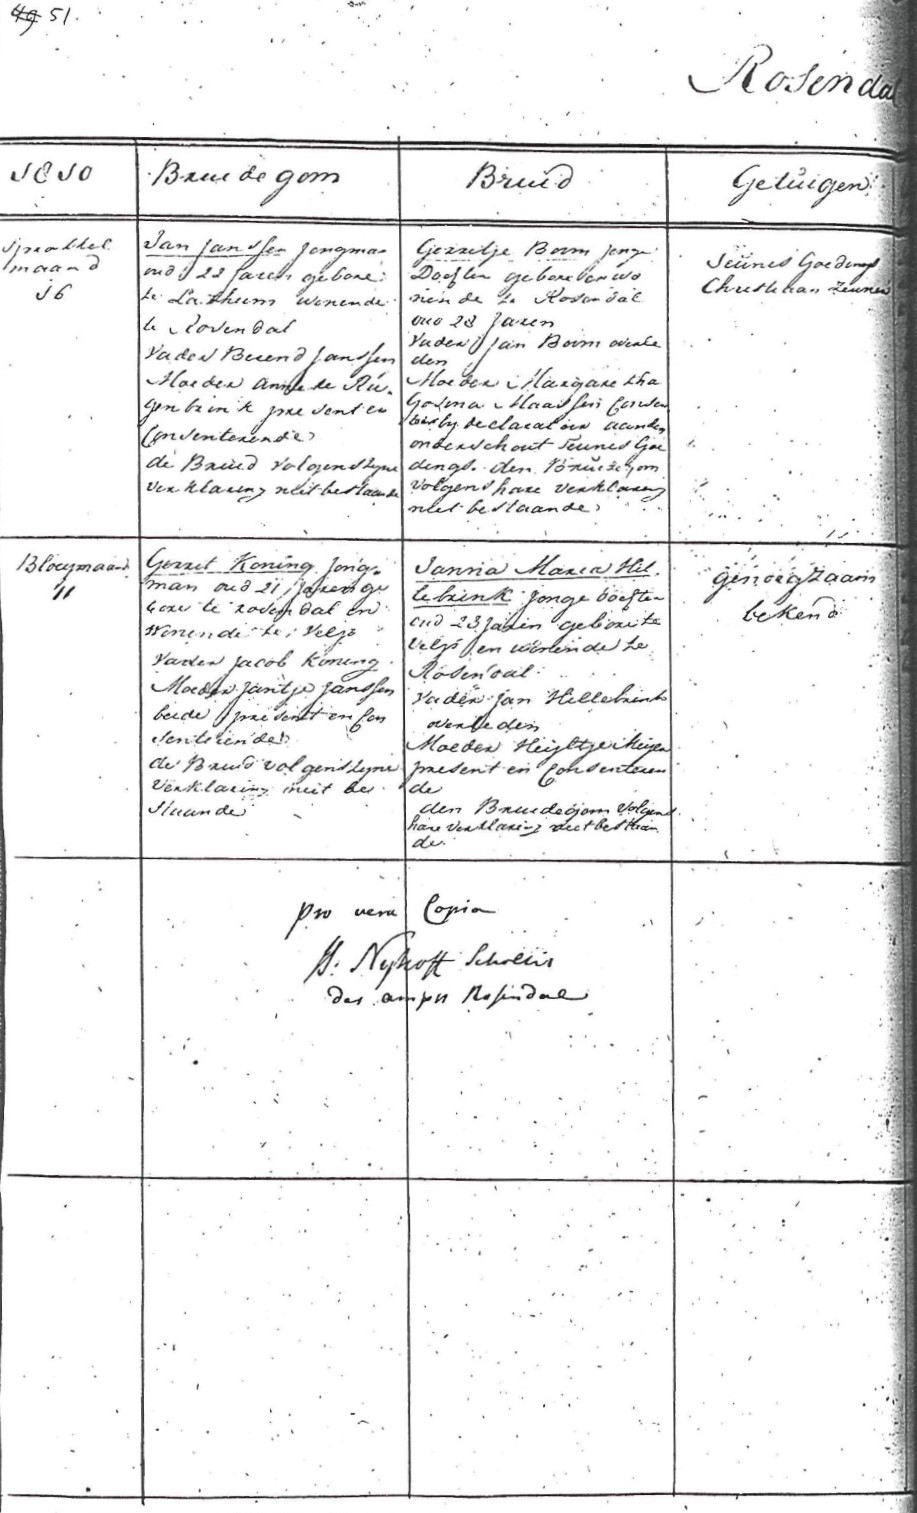 49 51.
Rosendal
1810
Bruidegom
Bruid
Getuigen
Sprokkel
maand
16
Jan Janssen Jongman
oud 22 Jaren gebore
te Lathum wonende
te Rosendal
Vader Berend Janssen
Moeder Anneke Rú-
genbrink present en
Consenterende
de Bruid volgens zyne
verklaring niet bestaande
Gerritje Bom jonge
Dochter geboren en wo
nende te Rosendal
oud 28 Jaren
Vader Jan Bom overle
den
Moeder Margaretha
Gosina Maassen Consen
by declaratoir aan den
onderschout Teunes Goe
dings den Bruidegom
volgens hare verklaring
niet bestaande
Teúnes Goedings
Christiaan Teunes
Bloeymaand
11
Gerret Koning Jong-
man oud 21 Jaren ge
bore te rosendal en
wonende te Velp
Vader Jacob Koning
Moeder Jantje Janssen
beide present en Con
senterende
de Bruid volgens zyne
verklaring niet be-
staande
Janna Maria Hil
lebrink Jonge dochter
oud 23 Jaren gebore te
Velp en wonende te
Rosendal
Vader Jan Hillebrink
overleden
Moeder Heijltje Meijer
present en Consenteren
de
den Bruidegom volgens
hare verklaring niet bestaan
de
genoegzaam
bekend
pro vera Copia
H. Nyhoff Scholtis
des ampts Rosendal